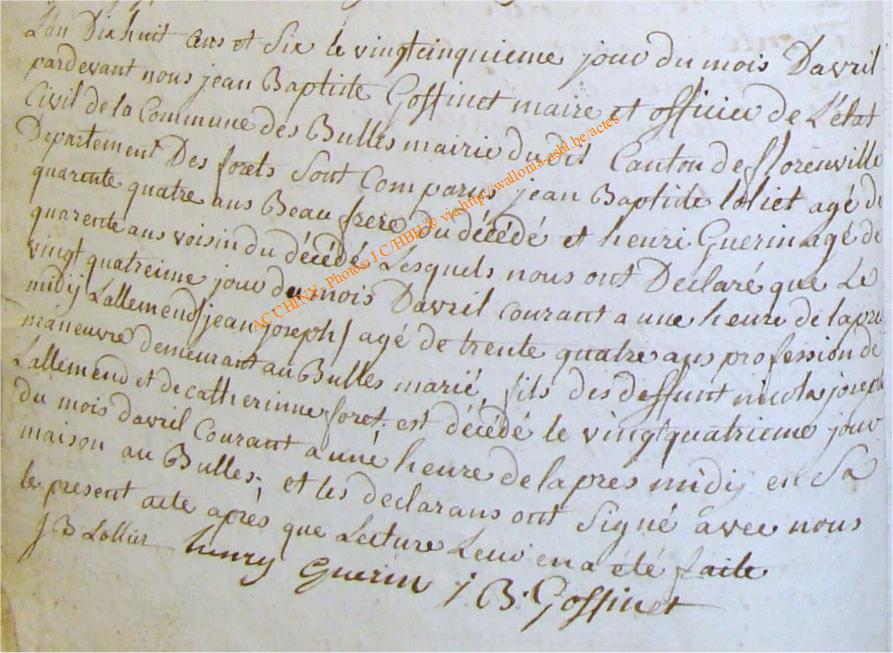 L'an Dix huit ans et Six le vingtcinquieme jour du mois Davril
pardevant nous jean Baptiste Goffinet maire et officier de L'état
Civil de la Commune des Bulles mairie du dit Canton de florenville
Departement Des forets Sont Comparus jean Baptiste loliet agé de
quarente quatre ans Beau frere Du décédé et henri Guerin agé de
quarente ans voisin du décédé Lesquels nous ont Declaré que Le
vingt quatreime jour du mois Davril courant a une heure de lapre
midij Lallemend / jean joseph / agé de trente quatre ans profession de
maneuvre demeurant au Bulles marié, fils des deffunt nicolas joseph
Lallemend et de catherinne foret. est décédé le vingtquatrieme jour
du mois davril Courant a uné heure de lapres midij en Sa
maison au Bulles. et les declarans ont Signé avec nous
le present acte après que Lecture Leur en a été faite
J B Lollier henry Guerin J. B. Goffinet
AC CHINY Photos: J C /HBH /8 via http://wallonia-asbl.be/actes